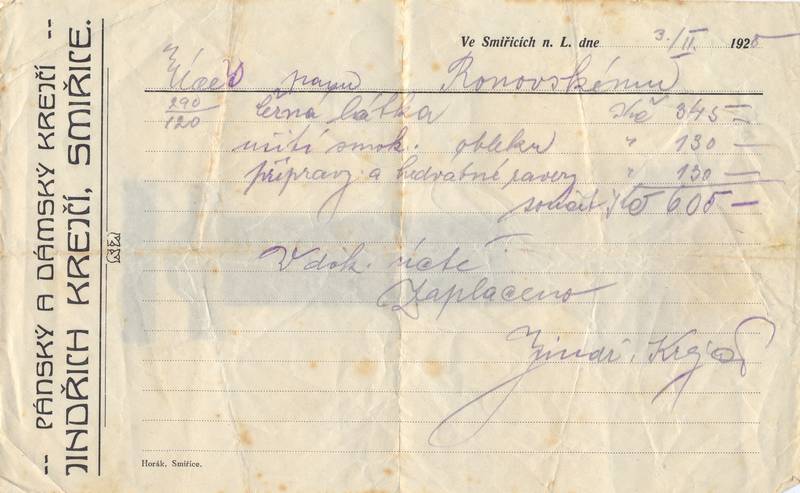 -- PÁNSKÝ A DÁMSKÝ KREJČÍ --
JINDŘICH KREJČÍ, SMIŘICE.
Ve Smiřicích n. L. dne 3./II. 1925
Účet panu Ronovskému
290/120 černá látka Kč 345 —
ušití smok. obleku " 130 —
přípravy a hedvábné ravery " 130 —
součet Kč 605 —
V dok. úctě
Zaplaceno
Jindř. Krejčí
Horák, Smiřice.